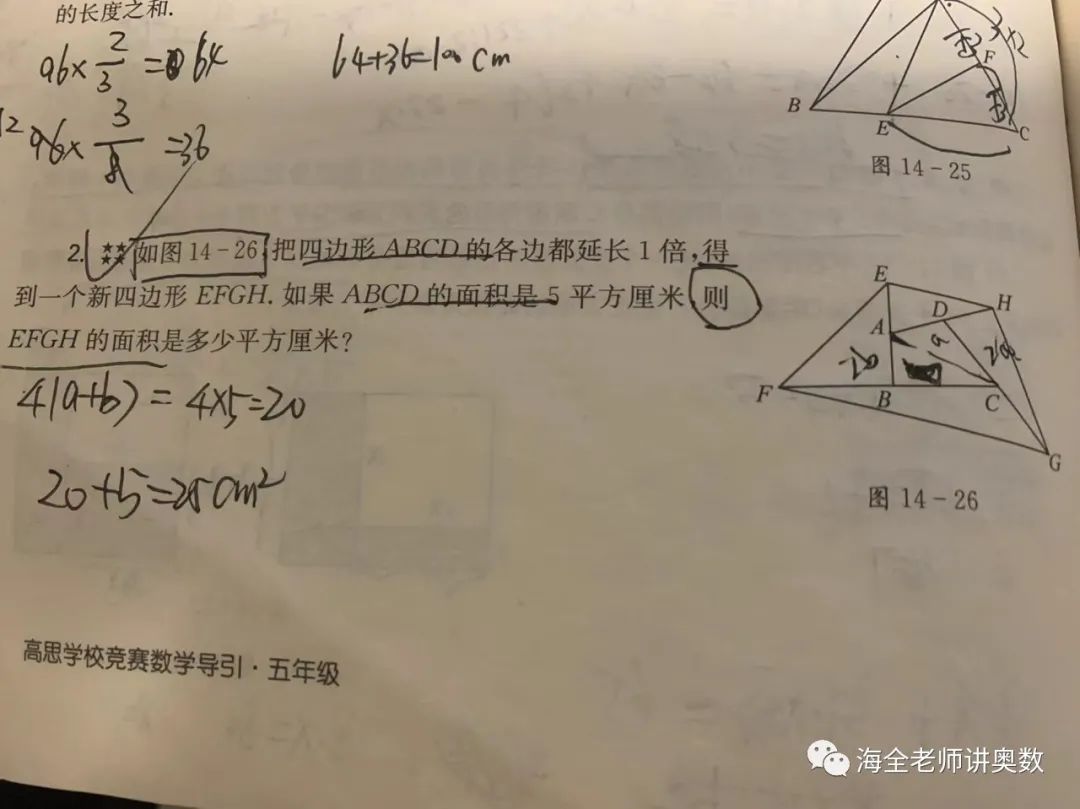 的长度之和.
96×2/3=64
64+36=100cm
96×3/8=36
B
E
F
C
图 14-25
2. ★★★★ 如图 14-26,把四边形 ABCD 的各边都延长 1 倍,得
到一个新四边形 EFGH. 如果 ABCD 的面积是 5 平方厘米,则
EFGH 的面积是多少平方厘米?
4(a+b)=4×5=20
20+5=25cm²
E
H
D
A
a
2a
2b
F
B
C
G
图 14-26
高思学校竞赛数学导引·五年级
海全老师讲奥数